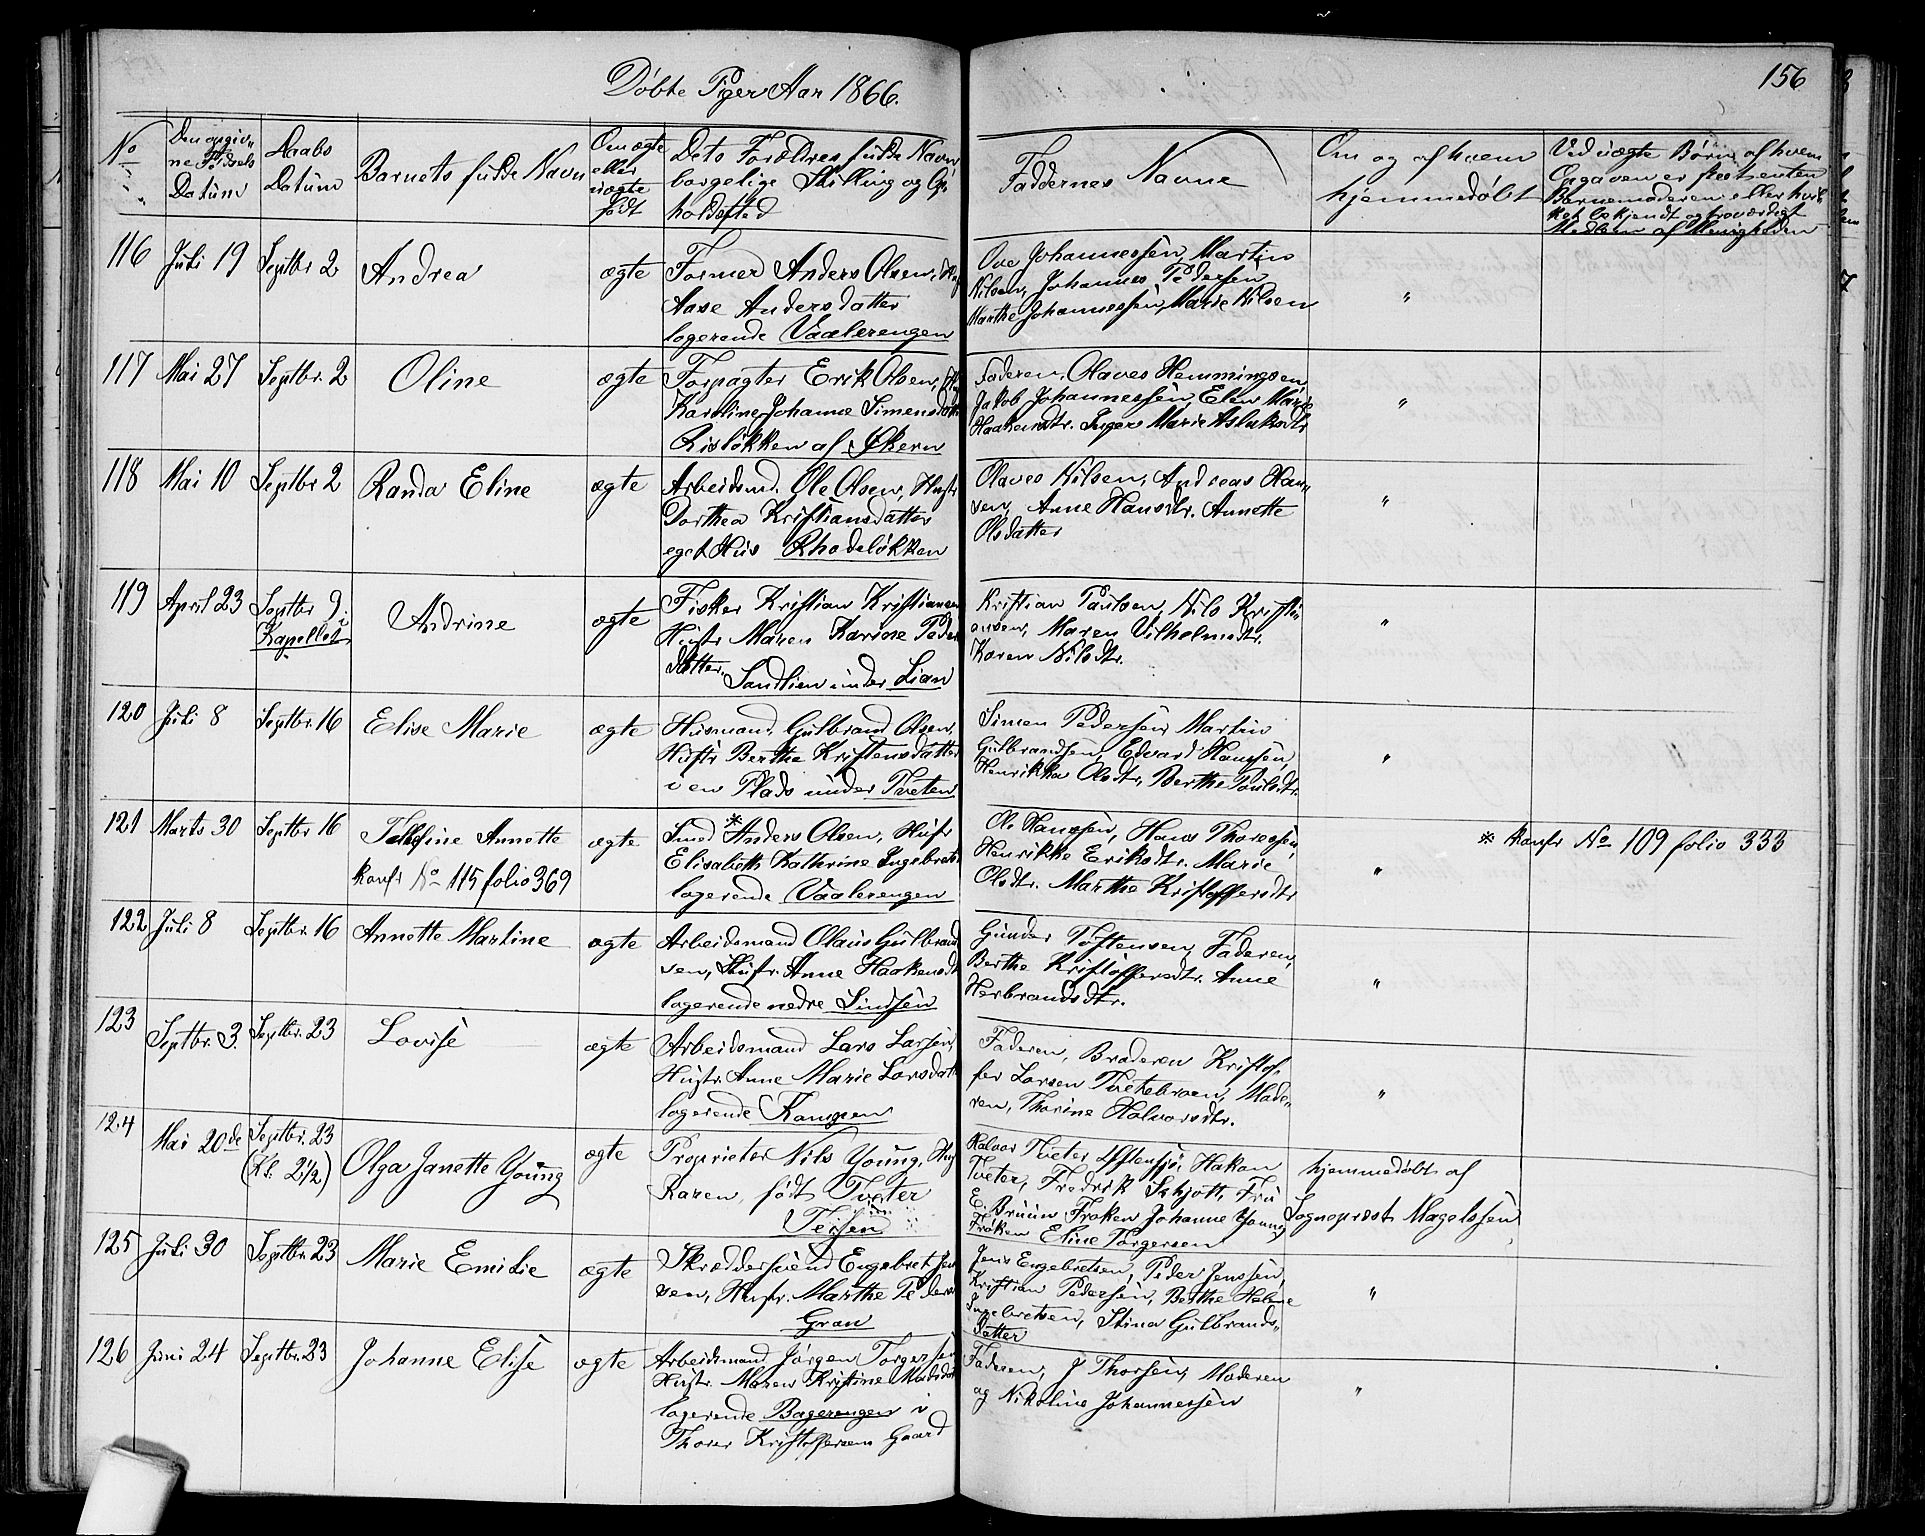 Døbte Piger Aar 1866.
156
No
Den opgiv-
ne Fødsels
Datum
Daabs
Datum
Barnets fulde Navn
Om ægte
eller
uægte
født
Dets Forældres fulde Navn
borgelige Stilling og Op-
holdssted
Faddernes Navne
Om og af hvem
hjemmedøbt
Ved uægte Børn, af hvem
Opgaven er
Barnemoderen eller hvil-
ket bekjendt og troværdigt
Medlem af Menigheden
116 Juli 19 Septbr 2 Andrea ægte
Former Anders Olsen,
Aase Andersdatter
logerende Vaalerengen
Ove Johannessen, Martin
Nilsen, Johannes Pedersen
Marthe Johannessen, Marie Nilsen
"
117 Mai 27 Septbr. 2 Oline ægte
Forpagter Erik Olsen,
Karoline Johanne Simensdatt
Risløkken af Økern
Faderen, Olaves Hemmingsen,
Jakob Johannessen, Elen Marie
Haakensdtr. Inger Marie Aslaksdtr
"
118 Mai 10 Septbr 2 Randa Eline ægte
Arbeidsmd. Ole Olsen, Hustr
Dorthea Kristiansdatter
eget Hus Rhodeløkken
Olaves Nilsen, Andreas Han-
sen, Anne Hansdtr. Annette
Olsdatter
"
119 April 23 Septbr 9 i
Kapellet
Andrine ægte
Fisker Kristian Kristiansen
Hustr Maren Karine Peder
datter. Sandlien under Lian
Kristian Paulsen, Nils Kristi-
ansen, Maren Vilhelmsdtr.
Karen Nilsdtr.
"
120 Juli 8 Septbr. 16 Elise Marie ægte
Husmand Gulbrand Olsen,
Hustr Berthe Kristensdatter
i en Plads under Tveten
Simen Pedersen, Martin
Gulbrandsen, Edvard Hanssen,
Henrikka Olsdtr, Berthe Poulsdtr.
"
121 Marts 30 Septbr 16 Annette
konfr No 115 folio 369
ægte
Smed * Anders Olsen, Hustr
Elisabeth Kathrine Ingebretsd
logerende Vaalerengen
Ole Hanssen, Hans Thoresen,
Henrikke Eriksdtr. Marie
Olsdtr. Marthe Kristoffersdtr
"
* konfr No 109 folio 333
122 Juli 8 Septbr. 16 Annette Martine ægte
Arbeidsmand Olaus Gulbrand
sen, Hustr. Anne Haakensdt
logerende nedre Sinsen
Gunder Tostensen, Faderen,
Berthe Kristoffersdtr. Anne
Herbrandsdtr.
"
123 Septbr. 3. Septbr. 23 Lovise ægte
Arbeidsmand Lars Larsen,
Hustr. Anne Marie Larsdatt
logerende Kampen
Faderen, Broderen Kristof-
fer Larsen Tvetebroen, Mode-
ren, Thorine Halvorsdtr.
"
124 Mai 20de Septbr. 23
(Kl. 2 1/2)
Olga Janette Young ægte
Proprietær Nils Young, Hus
Karen, født Tveter
Teisen
Halvor Tveter Østensjø, Hakon
Tveter, Fredrik Schjøtt, Fru
E. Bruun Frøken Johanne Young
Frøken Eline Torgersen
hjemmedøbt af
Sognepræst Magelssen
125 Juli 30 Septbr. 23 Marie Emilie ægte
Skræddersvend Engebret Jen
sen, Hustr. Marthe Peders
Gran
Jens Engebretsen, Peder Jenssen,
Kristian Pedersen, Berthe Helene
Ingebretsen, Stina Gulbrands-
datter
"
126 Juni 24 Septbr. 23 Johanne Elise ægte
Arbeidsmand Jørgen Torgersen
Hustr. Maren Kristine Madsdat
logerende Bagerengen i
Thorer Kristoffersens Gaard
Faderen, J Thorsen, Moderen
og Nikoline Johannessen
"